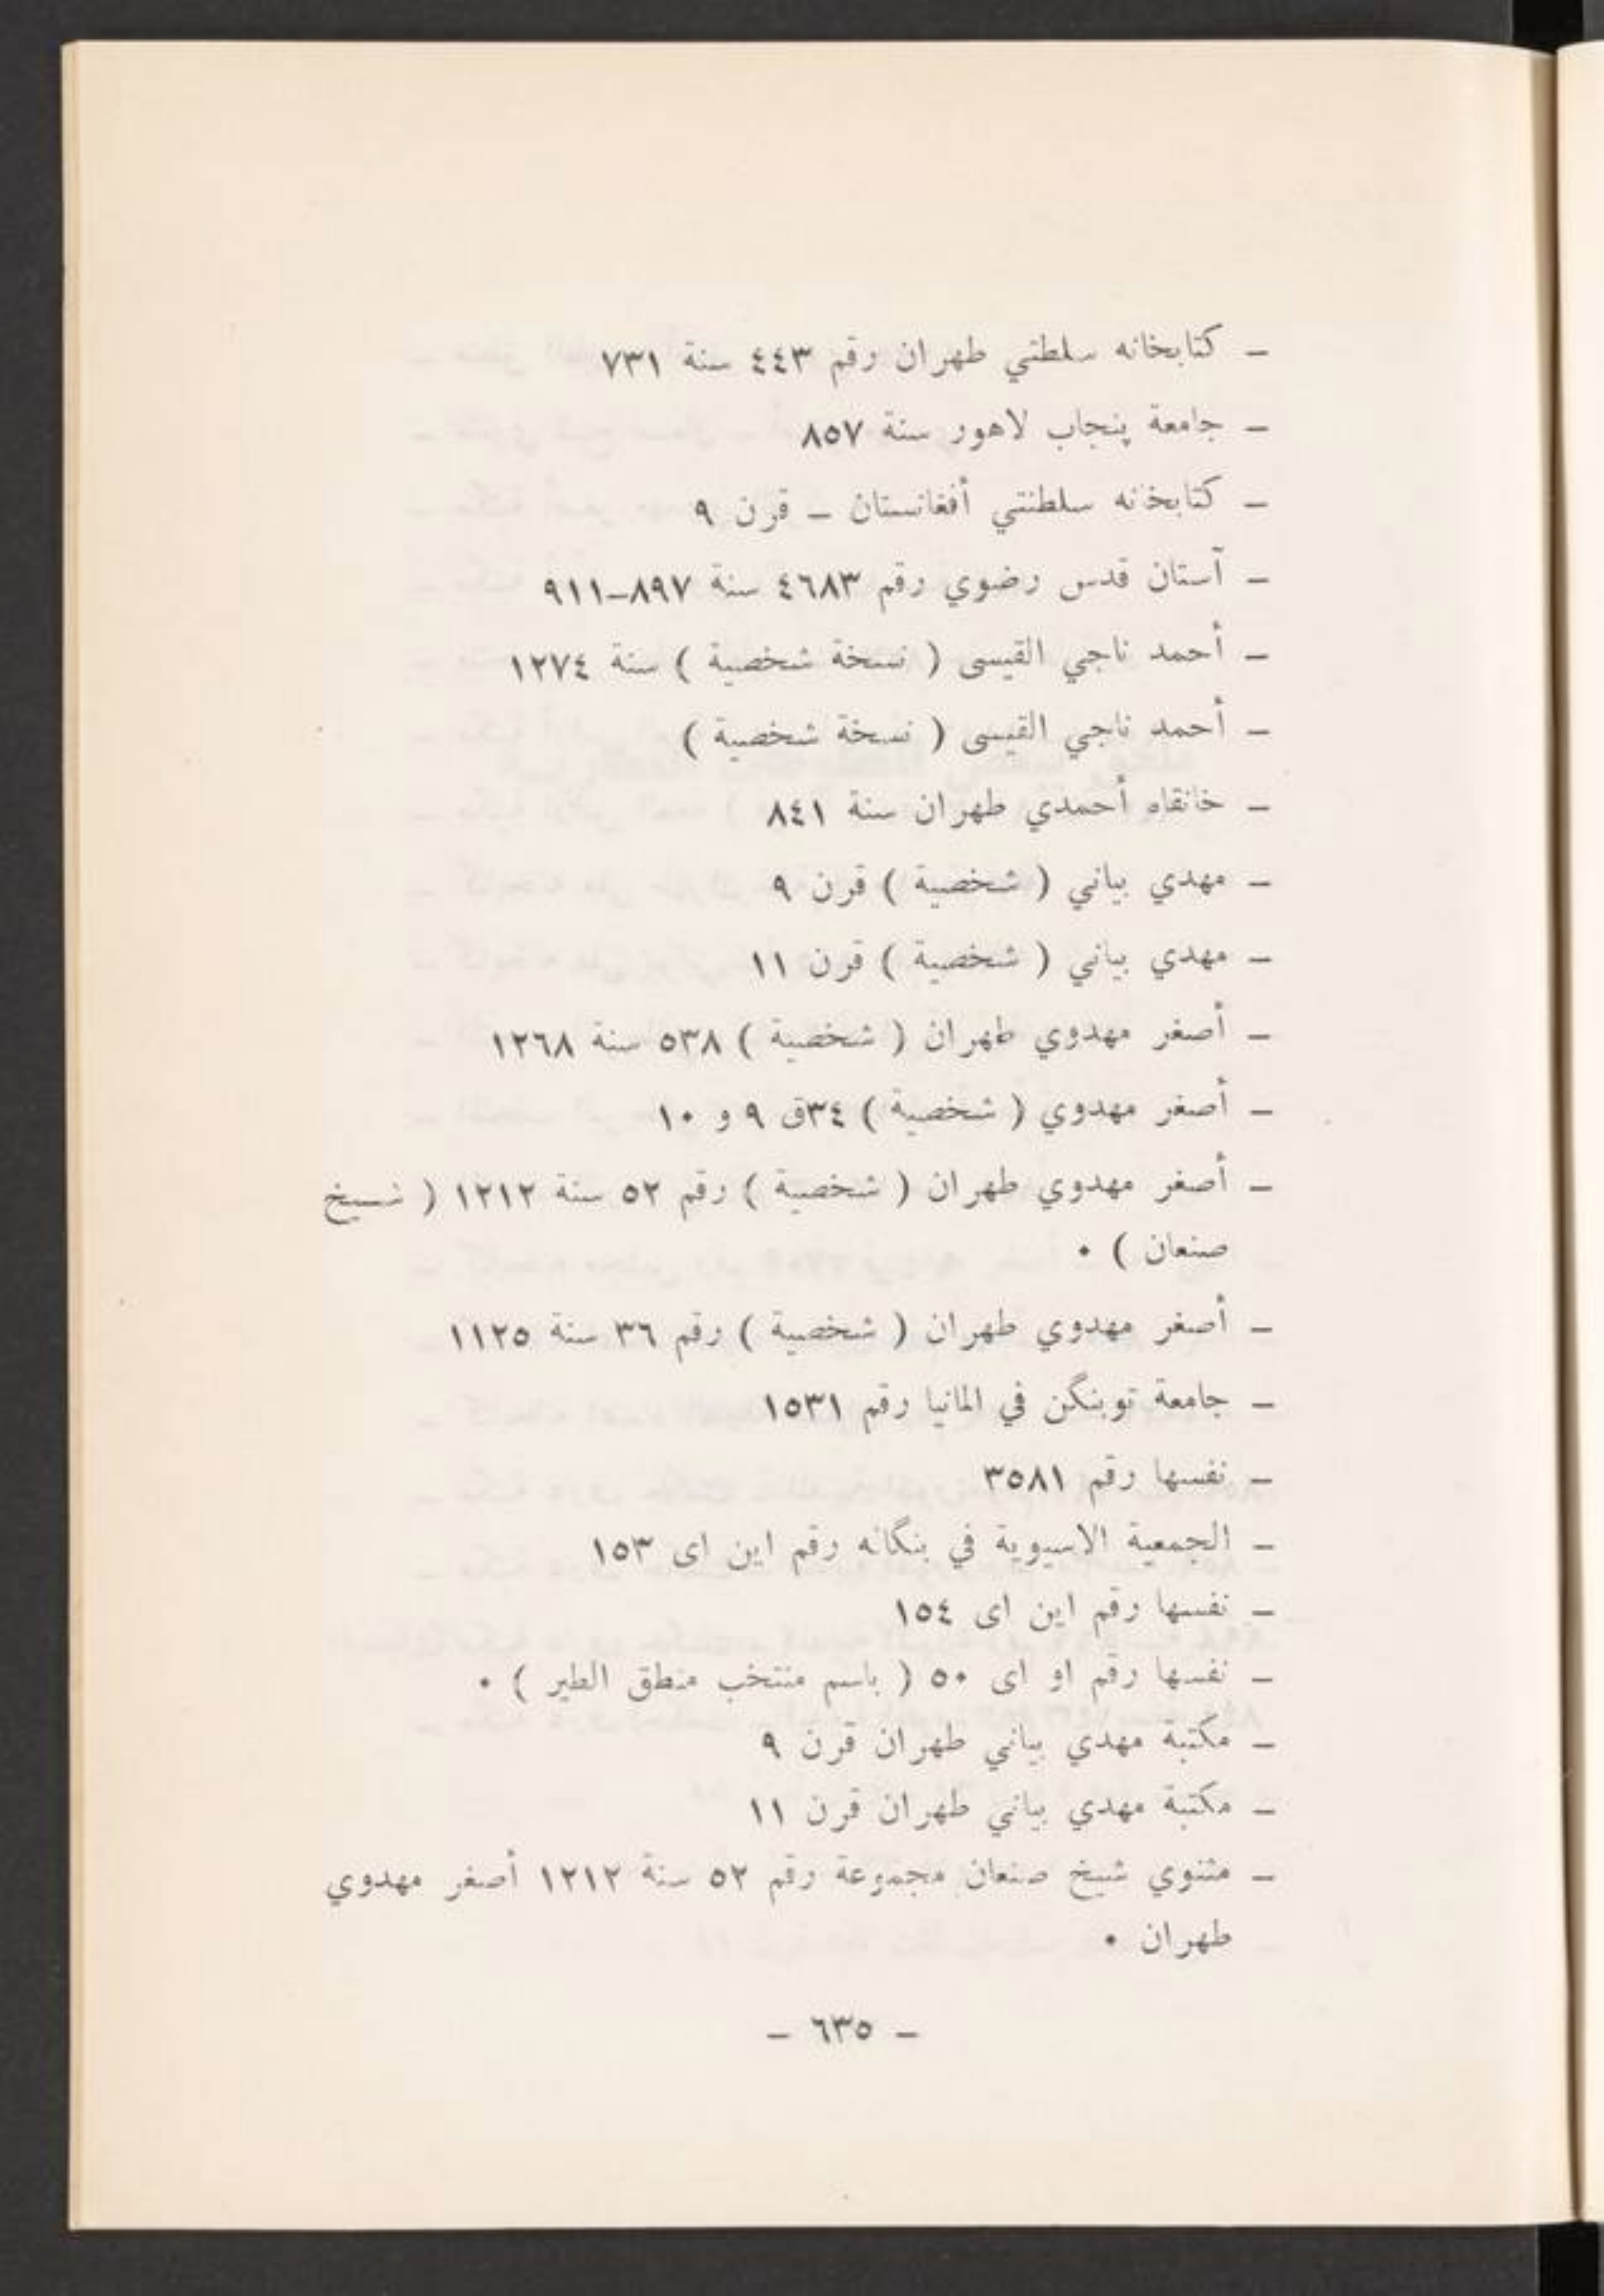 ـ كتابخانه سلطتي طهران رقم ٤٤٣ سنة ٧٣١
ـ جامعة پنجاب لاهور سنة ٨٥٧
ـ كتابخانه سلطنتي أفغانستان ـ قرن ٩
ـ آستان قدس رضوي رقم ٤٦٨٣ سنة ٨٩٧ـ٩١١
ـ أحمد ناجي القيسى ( نسخة شخصية ) سنة ١٢٧٤
ـ أحمد ناجي القيسى ( نسخة شخصية )
ـ خانقاه أحمدي طهران سنة ٨٤١
ـ مهدي بياني ( شخصية ) قرن ٩
ـ مهدي بياني ( شخصية ) قرن ١١
ـ أصغر مهدوي طهران ( شخصية ) ٥٣٨ سنة ١٢٦٨
ـ أصغر مهدوي ( شخصية ) ٣٤ق ٩ و ١٠
ـ أصغر مهدوي طهران ( شخصية ) رقم ٥٢ سنة ١٢١٢ ( شيخ
صنعان ) ٠
ـ أصغر مهدوي طهران ( شخصية ) رقم ٣٦ سنة ١١٢٥
ـ جامعة توبنگن في المانيا رقم ١٥٣١
ـ نفسها رقم ٣٥٨١
ـ الجمعية الاسيوية في بنگانه رقم اين اى ١٥٣
ـ نفسها رقم اين اى ١٥٤
ـ نفسها رقم او اى ٥٠ ( باسم منتخب منطق الطير ) ٠
ـ مكتبة مهدي بياني طهران قرن ٩
ـ مكتبة مهدي بياني طهران قرن ١١
ـ مثنوي شيخ صنعان مجموعة رقم ٥٢ سنة ١٢١٢ أصغر مهدوي
طهران ٠
ـ ٦٣٥ ـ